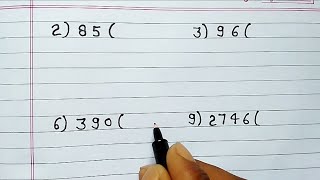 2) 85 (
3) 96 (
6) 390 (
9) 2746 (